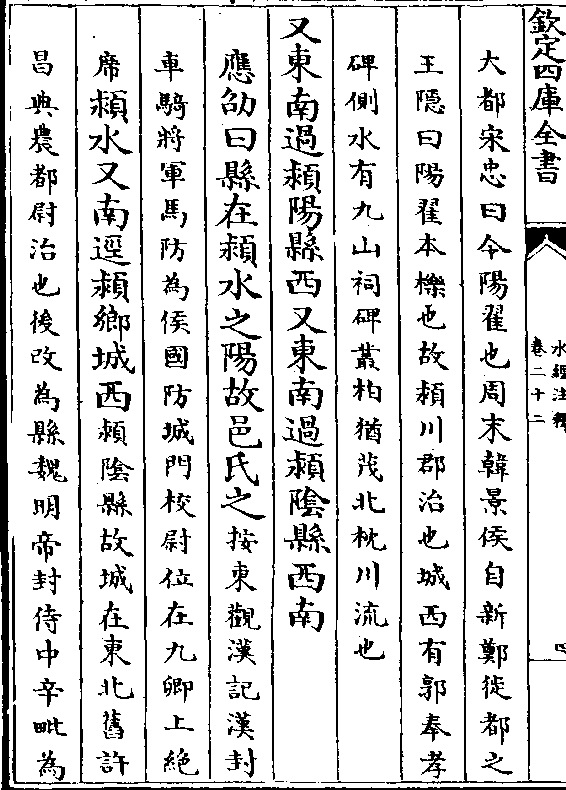 欽定四庫全書
水經注釋
卷二十二
大都宋忠曰今陽翟也周末韓景侯自新鄭徙都之
王隱曰陽翟本櫟也故潁川郡治也城西有郭奉孝
碑側水有九山祠碑叢柏猶茂北枕川流也
又東南過潁陽縣西又東南過潁陰縣西南
應劭曰縣在潁水之陽故邑氏之按東觀漢記漢封
車騎將軍馬防為侯國防城門校尉位在九卿上絕
席潁水又南逕潁鄉城西潁陰縣故城在東北舊許
昌典農都尉治也後改為縣魏明帝封侍中辛毗為